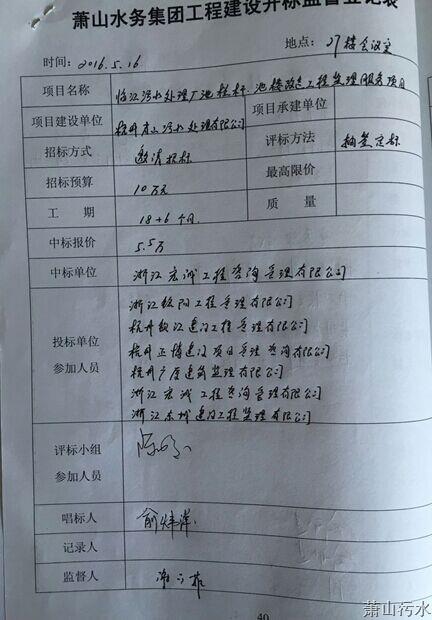 萧山水务集团工程建设开标监督登记表
时间: 2016.5.16 地点: 27楼会议室
项目名称 临江污水处理厂池楼改造工程监理服务项目
项目建设单位 杭州萧山污水处理有限公司 项目承建单位
招标方式 邀请招标 评标方法 抽签定标
招标预算 10万元 最高限价
工 期 18+6个月 质 量
中标报价 5.5万
中标单位 浙江宏诚工程咨询管理有限公司
投标单位
参加人员
浙江 工程管理有限公司
杭州 建设工程管理有限公司
杭州正博建设项目管理咨询有限公司
杭州广厦建筑监理有限公司
浙江宏诚工程咨询管理有限公司
浙江东城建设工程监理有限公司
评标小组
参加人员
唱标人
记录人
监督人
40
萧山污水